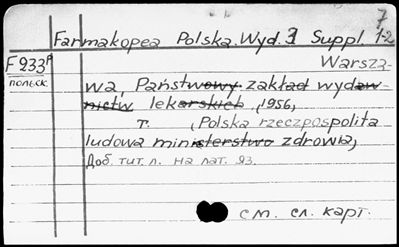 7
Farmakopea Polska. Wyd. 3 Suppl. 1-2
F933ᴾ Warsza-
польск. wa, Państwowy zakład wydaw-
nictw lekarskich, 1956,
т. (Polska rzeczpospolita
ludowa ministerstwo zdrowia)
Доб. тит. л. на лат. яз.
см. сл. карт.